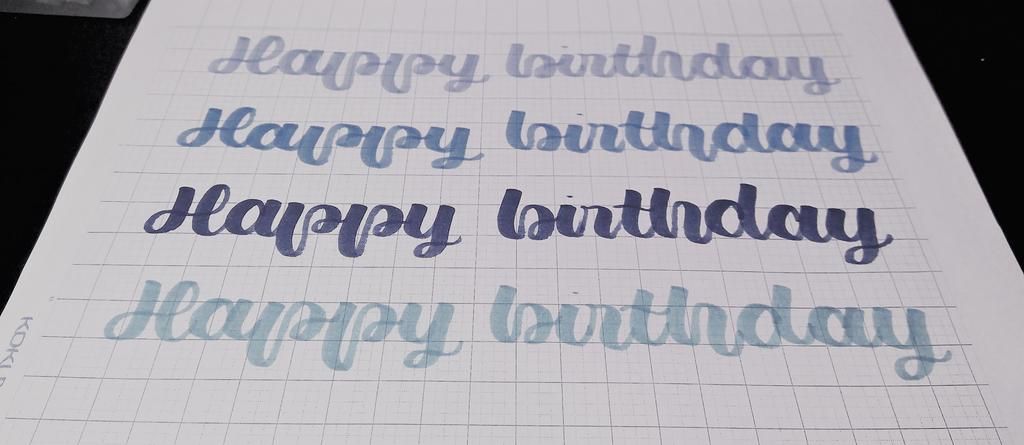 Happy birthday
Happy birthday
Happy birthday
Happy birthday